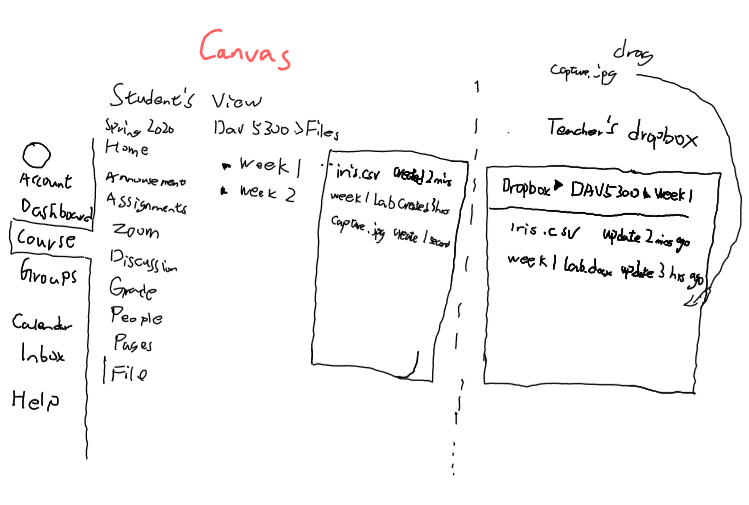 Canvas
Student's View
Spring 2020
Dav 5300 > Files
Account
Dashboard
Course
Groups
Calendar
Inbox
Help
Home
Announcement
Assignments
Zoom
Discussion
Grade
People
Pages
File
week 1
week 2
iris.csv created 2 mins
week 1 Lab created 3 hrs
Capture.jpg create 1 second
drag
Capture.jpg
Teacher's dropbox
Dropbox ▸ DAV5300 ▸ Week 1
iris.csv update 2 mins ago
week 1 Lab.docx update 3 hrs ago